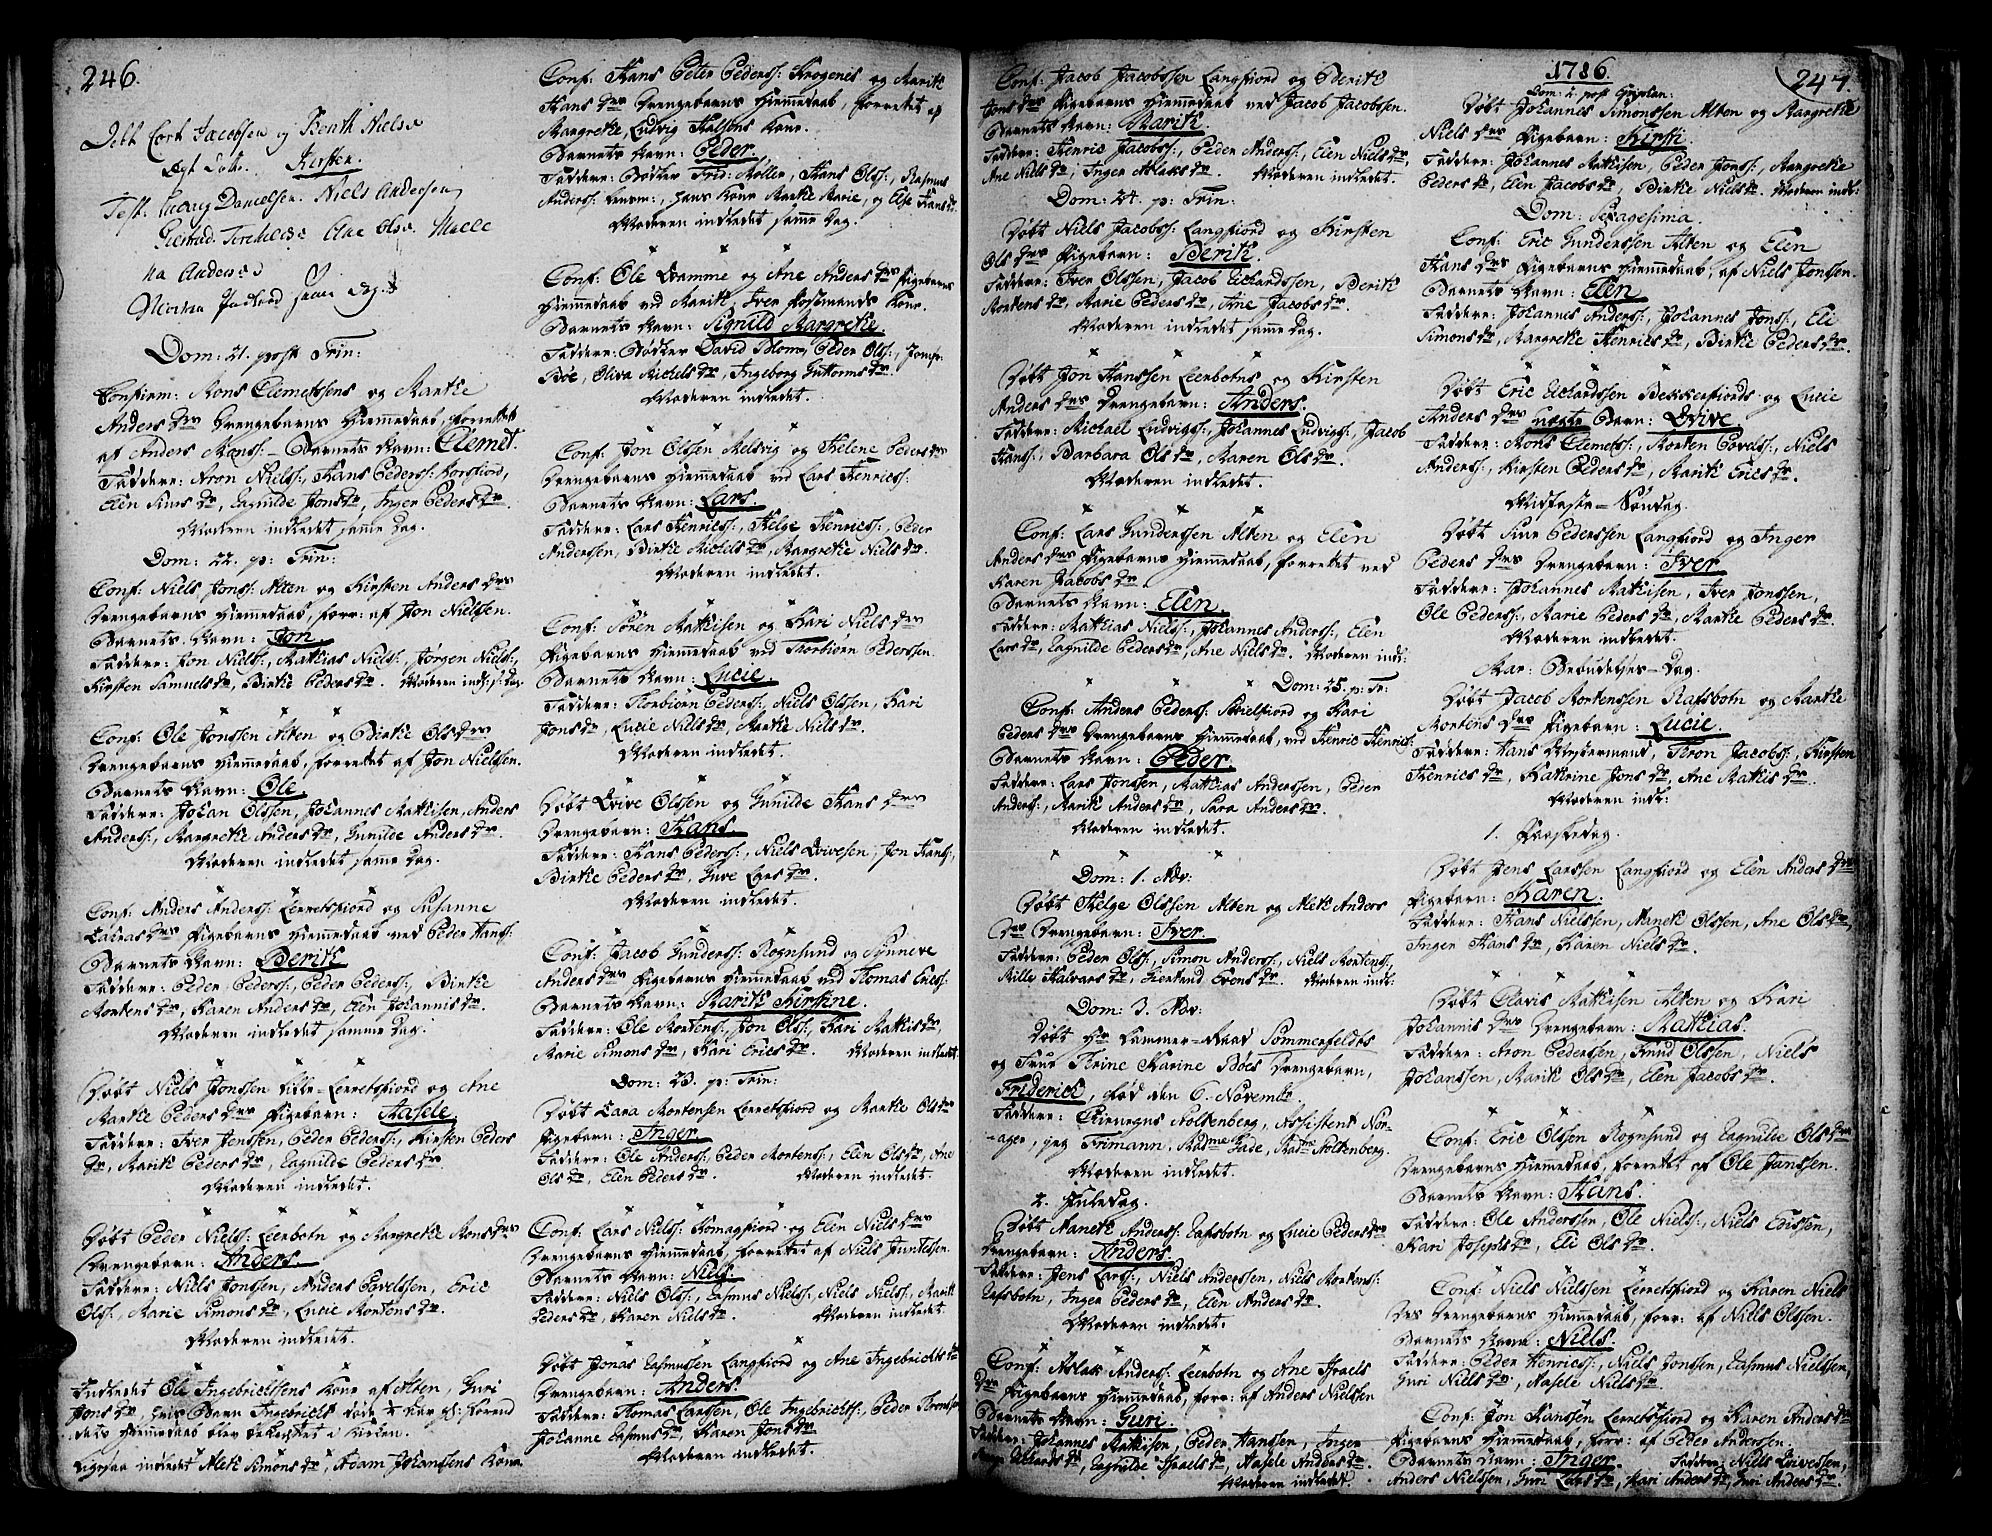 246.
Døbt Cort Jacobsen og Berith Niels
Kirsten.
Test: Ludvig Danielsen. Niels Andersen
Dom: 21. post Trin:
Confirm: Mons Clemetssens og Marthe
Anders drs Drengebarns Hiemmedaab, forrettet
af Anders Monss: - Barnets Navn: Clemet.
Faddere: Aron Nielss:, Hans Pederss: Korsfiord,
Elen Siurs dr, Ragnilde Jonsdr, Inger Pedersdr.
Moderen indledet samme Dag.
Dom: 22. p: Trin:
Conf: Niels Jonss: Alten og Kirsten Anders drs
Drengebarns Hiemmedaab, forr: af Jon Nielssen.
Barnets Navn: Jon
Faddere: Jon Nielss:, Mathias Nielss:, Jørgen Nielss:,
Kirsten Samuelsdr, Birthe Pedersdr. Moderen indl: s: Dag.
Conf: Ole Jonssen Alten og Birthe Olsdrs
Drengebarns Hiemmedaab, forrettet af Jon Nielssen.
Barnets Navn: Ole.
Faddere: Johan Olssen, Johannes Mathisen, Anders
Anderss:, Margrethe Andersdr, Gunilde Andersdr.
Moderen indledet samme Dag.
Conf: Anders Anderss: Lerretsfiord og Susanne
Pigebarns Hiemmedaab ved Peder Hanss:
Barnets Navn: Berith
Faddere: Peder Pederss:, Peder Pederss:, Birthe
Mortens dr, Karen Anders dr, Elen Johannis dr.
Moderen indledet samme Dag.
Døbt Niels Jonssen Lille-Lerretsfiord og Ane
Marthe Peders drs Pigebarn: Aasele.
Faddere: Iver Jenssen, Peder Pederss:, Kirsten Peders
dr, Marith Peders dr, Ragnilde Peders dr.
Moderen indledet.
Døbt Peder Nielss: Leerbotn og Margrethe Monsdrs
Drengebarn: Anders.
Faddere: Niels Jonssen, Anders Povelssen, Eric
Olss:, Marie Simons dr, Lucie Mortens dr.
Moderen indledet.
Indledet Ole Ingebrichtsens Kone af Alten, Guri
Jons dr, hvis Barn Ingebricht døde
dets Hiemmedaab blev bekiendtet i Kirken.
Ligesaa indledet Aleth Simons dr, Adam Johanssens Kone
Conf: Hans Peter Pederss: Krogenes og Marith
Hans drs Drengebarns Hiemmedaab, forrettet af
Margrethe, Ludvig Kone.
Barnets Navn: Peder.
Faddere: Bødker Frid: Møller, Hans Olss:, Rasmus
Anderss:, hans Kone Marthe Marie, og Else Hans dr.
Moderen indledet samme Dag.
Conf: Ole Qvamme og Ane Anders drs Pigebarns
Hiemmedaab ved Marith, Iver Kone.
Barnets Navn: Signild Margrethe.
Faddere: Bødker David Blom, Peder Olss:, Jomfr:
Bøe, Oliva Michels dr, Ingeborg Guttorms dr.
Moderen indledet.
Conf: Jon Olssen Melsvig og Helene Pedersdrs
Drengebarns Hiemmedaab ved Lars Henricss:
Barnets Navn: Lars.
Faddere: Lars Henricss:, Helge Henricss:, Peder
Andersen, Birthe Michels dr, Margrethe Niels dr.
Moderen indledet.
Conf: Søren Mathisen og Kari Niels drs
Pigebarns Hiemmedaab ved Thorbiørn Pederssen.
Barnets Navn: Lucie.
Faddere: Thorbiørn Pederss:, Niels Olssen, Kari
Jons dr, Lucie Niels dr, Marthe Niels dr.
Moderen indledet.
Døbt Qvive Olssen og Gunilde Hans drs
Drengebarn: Hans
Faddere: Hans Pederss:, Niels Qvivesen, Jon Hanss:,
Birthe Peders dr, Lars dr.
Moderen indledet.
Conf: Jacob Gunderss: Rognsund og Synneve
Anders drs Pigebarns Hiemmedaab ved Thomas Ericss:
Barnets Navn: Marith Kirstine.
Faddere: Ole Mortenss:, Jon Olss:, Kari Mathisdr,
Marie Simons dr, Kari Erics dr. Moderen indledet.
Dom: 23. p: Trin:
Døbt Lara Mortensen Lerretsfiord og Marthe Olsdrs
Pigebarn: Inger.
Faddere: Ole Anderss:, Peder Mortenss:, Elen Olsdr, Ane
Ols dr, Elen Peders dr. Moderen indledet.
Conf: Lars Nielss: Komagfiord og Elen Niels drs
Drengebarns Hiemmedaab, forrettet af Niels
Barnets Navn: Niels.
Faddere: Niels Olss:, Rasmus Nielss:, Niels Nielss:, Marith
Peders dr, Karen Niels dr. Moderen indledet
Døbt Jonas Rasmussen Langfiord og Ane Ingebrichts dr
Drengebarn: Anders.
Faddere: Thomas Larssen, Ole Ingebrichtss:, Peder
Johanne Rasmus dr, Karen Jons dr
Moderen indledet.
Conf: Jacob Jacobssen Langfiord og Berith
Jons drs Pigebarns Hiemmedaab ved Jacob Jacobssen.
Barnets Navn: Marith.
Faddere: Henric Jacobss:, Peder Anderss:, Elen Nielsdr,
Ane Niels dr, Inger Aslaks dr. Moderen indledet.
Dom: 24. p: Trin:
Døbt Niels Jacobss: Langfiord og Kirsten
Ols drs Pigebarn: Berith.
Faddere: Iver Olssen, Jacob Richardssen, Berith
Mortens dr, Marie Peders dr, Ane Jacobs dr.
Moderen indledet samme Dag.
Døbt Jon Hanssen Leerbotns og Kirsten
Anders drs Drengebarn: Anders.
Faddere: Michael Ludvigss:, Johannes Ludvigss:, Jacob
Hanss:, Barbara Ols dr, Maren Ols dr.
Moderen indledet.
Conf: Lars Gunderssen Alten og Elen
Anders drs Pigebarns Hiemmedaab, forrettet ved
Karen Jacobs dr
Barnets Navn: Elen.
Faddere: Mathias Nielss:, Johannes Anderss:, Elen
Lars dr, Ragnilde Peders dr, Ane Niels dr. Moderen indl:
Dom: 25. p: Tr:
Conf: Anders Pederss: Skielfiord og Kari
Peders drs Drengebarns Hiemmedaab, ved Henric Henricss:
Barnets Navn: Peder.
Faddere: Lars Jonssen, Mathias Anderssen, Peder
Anderss:, Marith Anders dr, Sara Anders dr.
Moderen indledet.
Dom: 1. Adv:
Døbt Helge Olssen Alten og Aleth Anders
drs Drengebarn: Iver.
Faddere: Peder Olss:, Simon Anderss:, Niels Mortenss:,
Mille Halvars dr, Giertrud Evens dr. Moderen indl:
Dom: 3. Adv:
Døbt Hr Kammer-Raad Sommerfeldts
og Frue Thrine Karine Bøes Drengebarn,
Friderich, fød den 6. Novembr.
Faddere: Chirurgus Holtenberg, Assistent Nor-
-ager, jeg Frimann, Madme Gade, Madme Holtenberg.
Moderen indledet.
2. Juledag.
Døbt Maneth Anderss: Rafsbotn og Lucie Pedersdrs
Drengebarn: Anders.
Faddere: Jens Larss:, Niels Anderssen, Niels Mortenss:
Rafsbotn, Inger Peders dr, Elen Anders dr.
Moderen indledet.
Conf: Aslak Anderss: Leerbotn og Ane Israels
drs Pigebarns Hiemmedaab, forr: af Anders Nielssen
Barnets Navn: Guri.
Faddere: Johannes Mathisen, Peder Hanssen, Inger
Richards dr, Ragnilde Israels dr, Aasele Anders dr.
Moderen indledet.
1786.
247.
Dom: 2. post Epiphan:
Døbt Johannes Simonssen Alten og Margrethe
Niels drs Pigebarn: Kirsti
Faddere: Johannes Mathisen, Peder Jonss:, Margrethe
Peders dr, Elen Jacobs dr, Birthe Niels dr. Moderen indl:
Dom: Sexagesima.
Conf: Eric Gunderssen Alten og Elen
Hans drs Pigebarns Hiemmedaab, af Niels Jonssen.
Barnets Navn: Elen
Faddere: Johannes Anderss:, Johannes Jonss:, Eli
Simons dr, Margrethe Henrics dr, Birthe Peders dr.
Døbt Eric Richardssen Bekkerfiords og Lucie
Anders drs uægte Barn: Qvive
Faddere: Mons Clemetss:, Morten Povelss:, Niels
Anderss:, Kirsten Peders dr, Marith Erics dr.
Midfaste-Søndag.
Døbt Siur Pederssen Langfiord og Inger
Peders drs Drengebarn: Iver
Faddere: Johannes Mathisen, Iver Jonssen,
Ole Pederss:, Marie Peders dr, Marthe Peders dr.
Moderen indledet.
Mar: Bebudelses-Dag.
Døbt Jacob Mortenssen Rafsbotn og Marthe
Mortens drs Pigebarn: Lucie.
Faddere: Hans Thron Jacobss:, Kirsten
Henrics dr, Kathrine Jons dr, Ane Mathis dr.
Moderen indl:
1. Paaskedag.
Døbt Jens Larssen Langfiord og Elen Anders drs
Pigebarn: Karen.
Faddere: Hans Nielssen, Maneth Olssen, Ane Ols dr,
Inger Hans dr, Karen Niels dr.
Døbt Clavis Mathisen Alten og Kari
Johannis drs Drengebarn: Mathias.
Faddere: Aron Pederssen, Knud Olssen, Niels
Johanssen, Marith Ols dr, Elen Jacobs dr.
Conf: Eric Olssen Rognsund og Ragnilde Olsdrs
Drengebarns Hiemmedaab, forrettet af Ole Janssen.
Barnets Navn: Hans.
Faddere: Ole Anderssen, Ole Nielss:, Niels
Kari Josephs dr, Eli Ols dr.
Conf: Niels Nielssen Lerretsfiord og Karen Niels
drs Drengebarns Hiemmedaab, forr: af Niels Olssen.
Barnets Navn: Niels.
Faddere: Peder Henricss:, Niels Jonssen, Rasmus Nielssen,
Guri Niels dr, Aasele Niels dr.
Conf: Jon Hanssen Lerretsfiord og Karen Anders drs
Pigebarns Hiemmedaab, forr: af Peder Anderssen.
Barnets Navn: Inger. Faddere: Niels Qvivessen,
Anders Nielssen, Guri Lars dr, Mari Anders dr, Guri Anders dr.